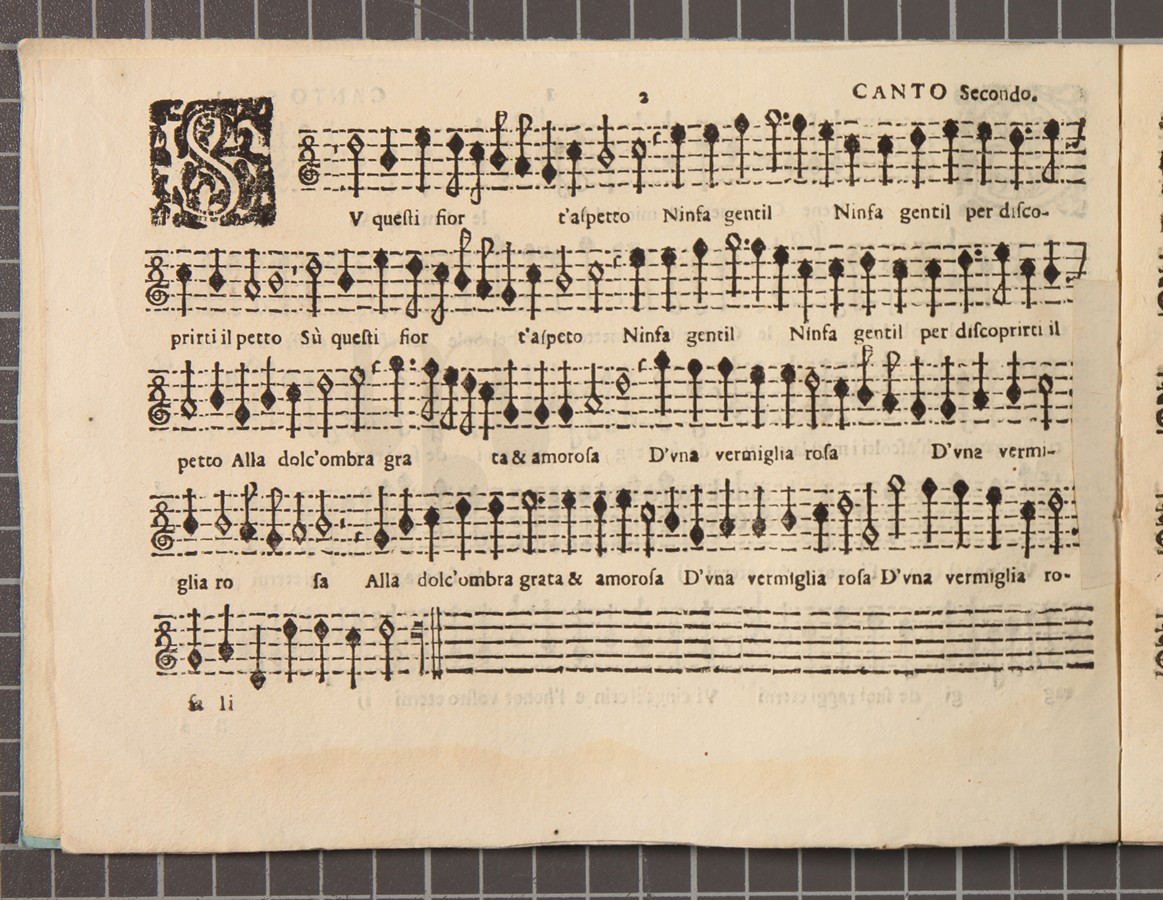 2 CANTO Secondo.
SV queſti fior t'aſpetto Ninfa gentil Ninfa gentil per diſco-
prirti il petto Sù queſti fior t'aſpeto Ninfa gentil Ninfa gentil per diſcoprirti il
petto Alla dolc'ombra gra ta & amoroſa D'vna vermiglia roſa D'vna vermi-
glia ro ſa Alla dolc'ombra grata & amoroſa D'vna vermiglia roſa D'vna vermiglia ro-
ſa li